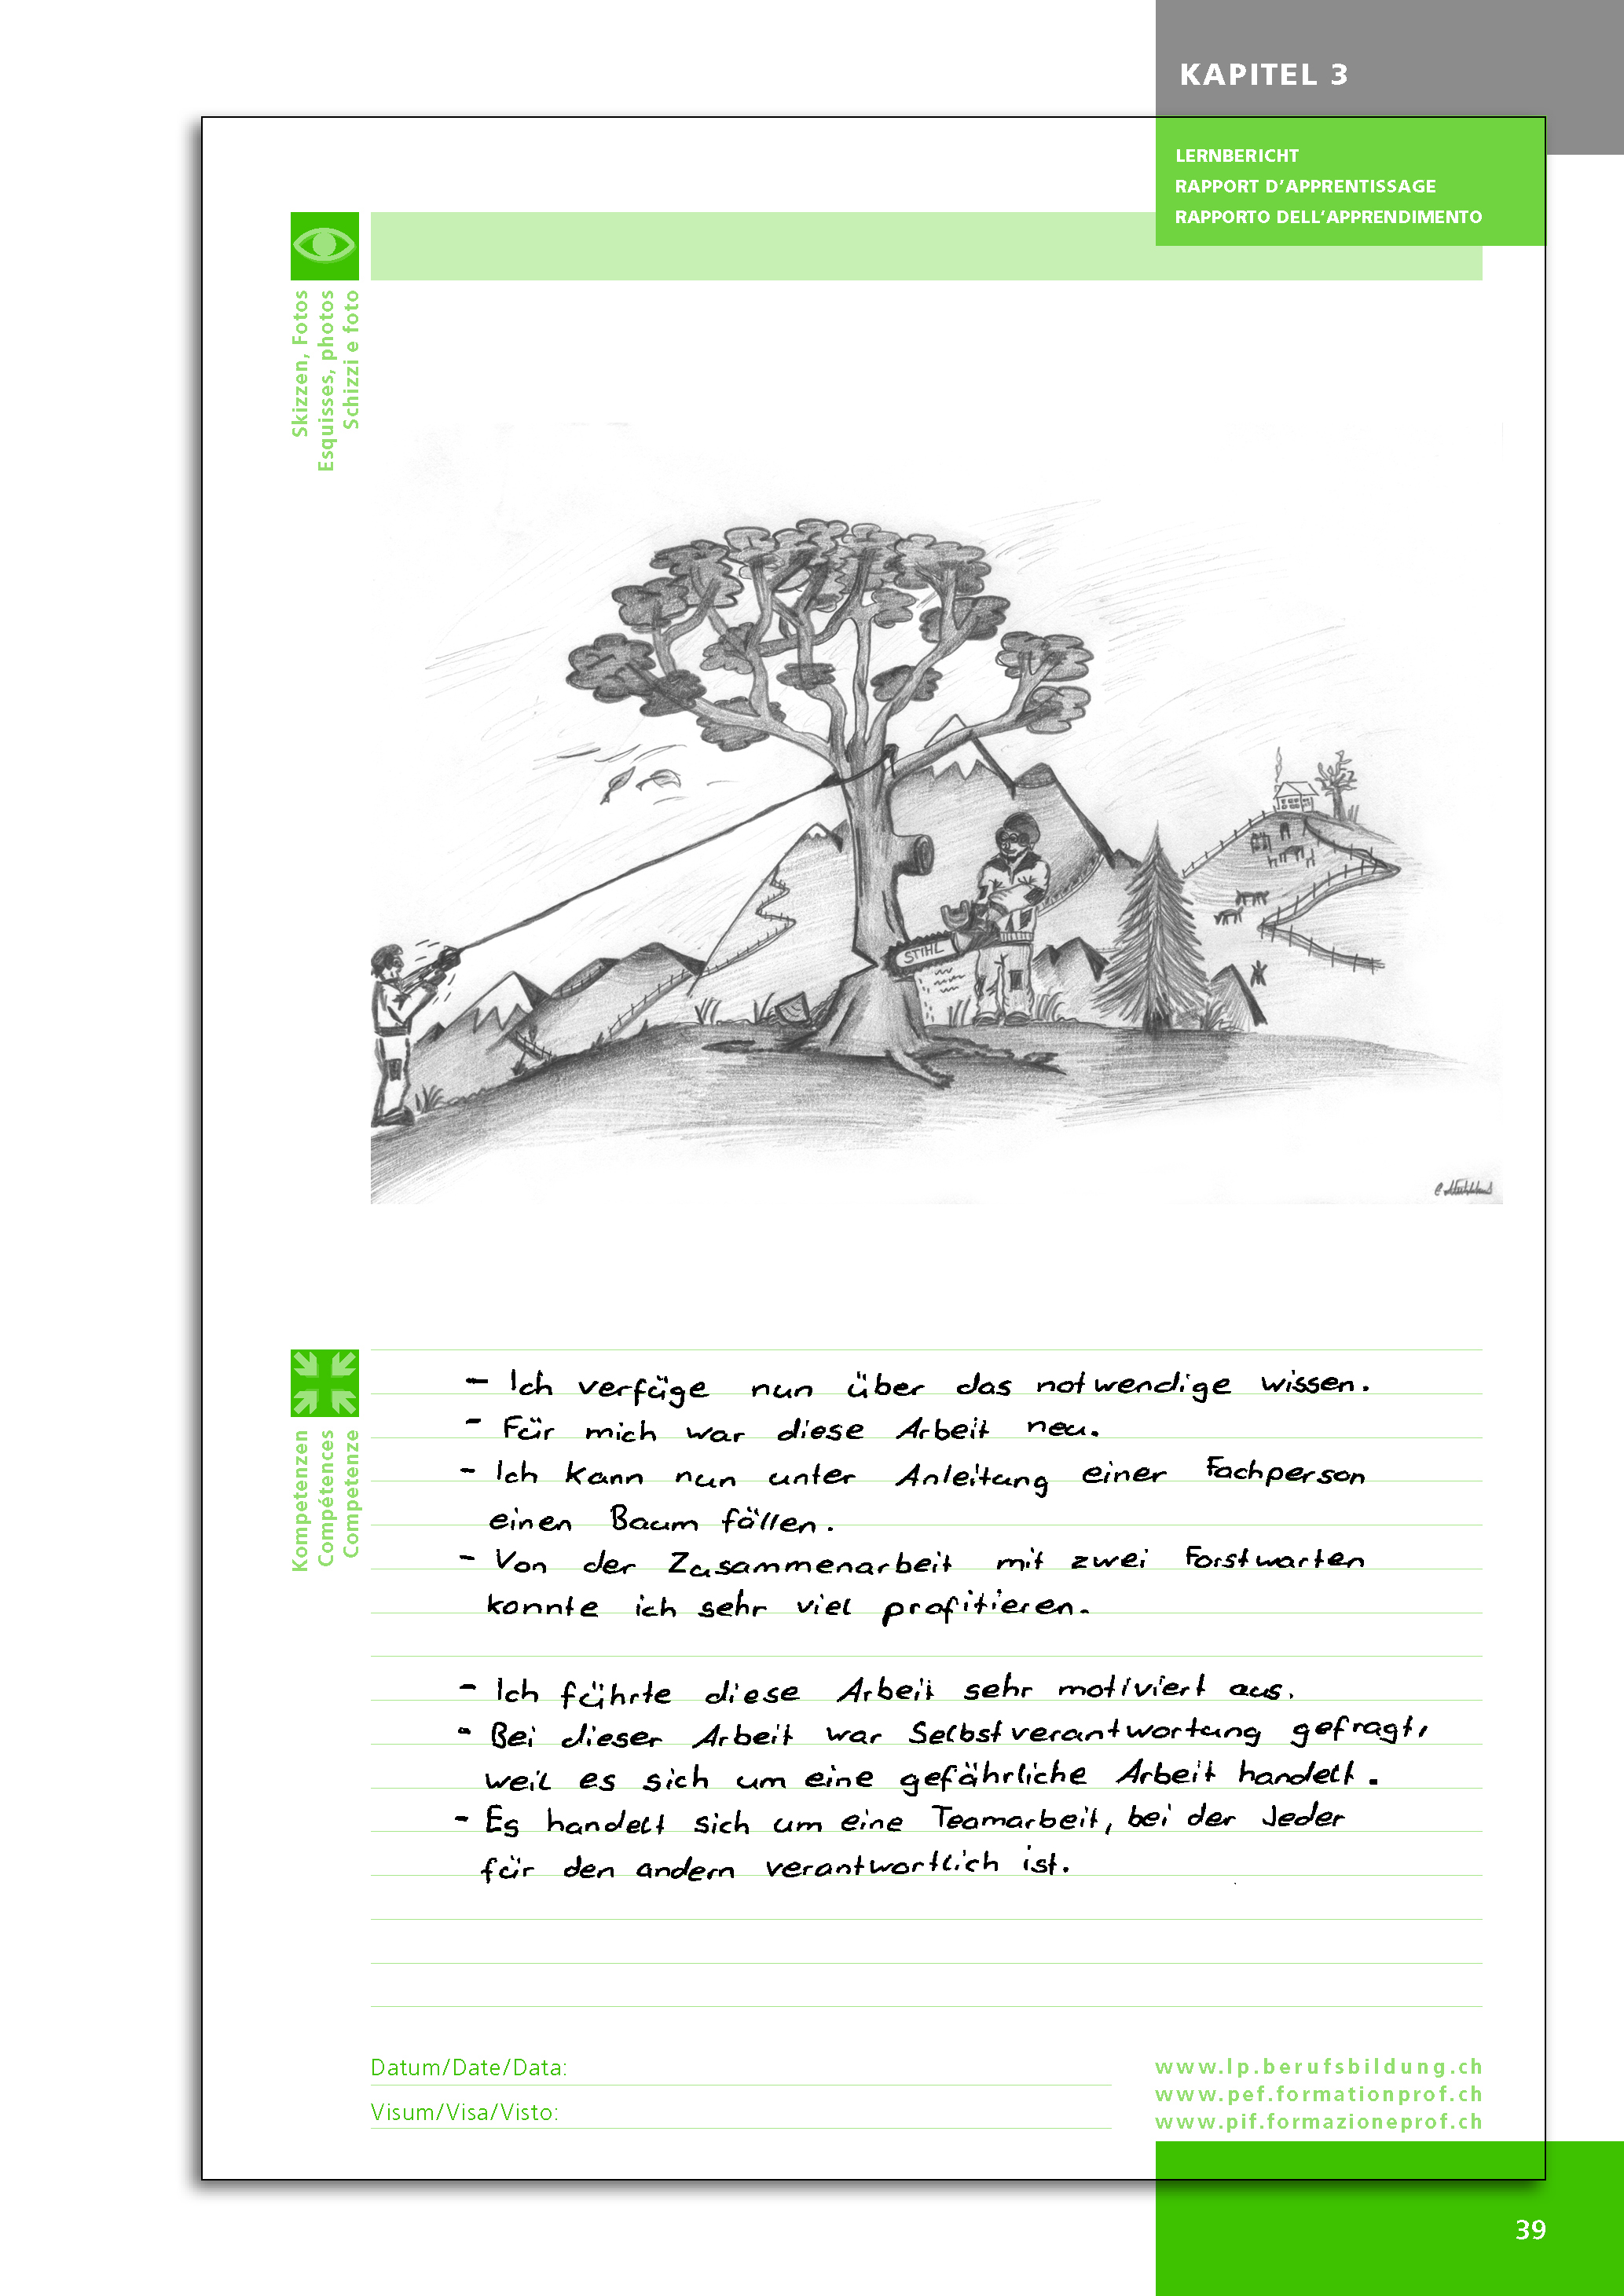 KAPITEL 3
LERNBERICHT
RAPPORT D'APPRENTISSAGE
RAPPORTO DELL'APPRENDIMENTO
Skizzen, Fotos
Esquisses, photos
Schizzi e foto
STIHL
Kompetenzen
Compétences
Competenze
- Ich verfüge nun über das notwendige wissen.
- Für mich war diese Arbeit neu.
- Ich kann nun unter Anleitung einer Fachperson
einen Baum fällen.
- Von der Zusammenarbeit mit zwei Forstwarten
konnte ich sehr viel profitieren.
- Ich führte diese Arbeit sehr motiviert aus.
- Bei dieser Arbeit war Selbstverantwortung gefragt,
weil es sich um eine gefährliche Arbeit handelt.
- Es handelt sich um eine Teamarbeit, bei der Jeder
für den andern verantwortlich ist.
Datum/Date/Data:
Visum/Visa/Visto:
www.lp.berufsbildung.ch
www.pef.formationprof.ch
www.pif.formazioneprof.ch
39